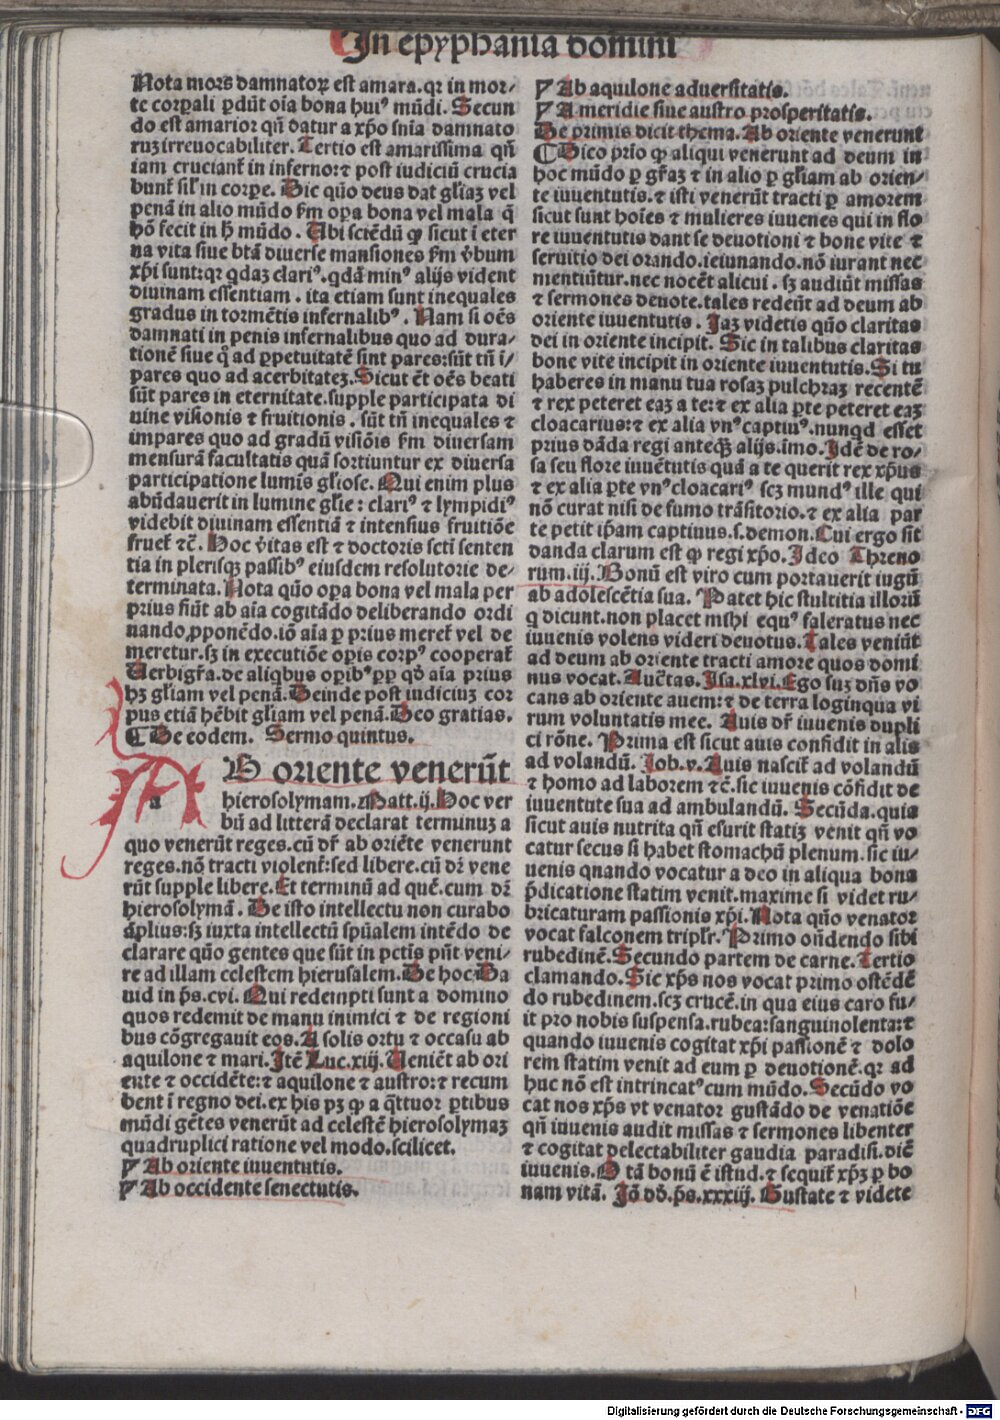 In epyphania domini
Nota mors damnatoꝝ est amara.qꝛ in mor⸗
te corꝑali ꝑdūt oīa bona huiꝰ mūdi. Secun
do est amarior qn̄ datur a xp̄o snīa damnato
ruꝫ irreuocabiliter. Tertio est amarissima qn̄
iam cruciant̄ in inferno:⁊ post iudiciū crucia
bunt̄ sil̄ in corꝑe. Dic quō deus dat gl̄iaꝫ vel
penā in alio mūdo fm oꝑa bona vel mala q̄
hō fecit in h̄ mūdo. Ubi sciēdū ꝙ sicut ī eter
na vita siue btā diuerse mansiones fm v̄bum
xp̄i sunt:qꝛ qdaꝫ clariꝰ.qdā minꝰ alijs vident
diuinam essentiam. ita etiam sunt inequales
gradus in tormētis infernalibꝰ. Nam si oēs
damnati in penis infernalibus quo ad dura⸗
tionē siue q̄ ad ꝑpetuitatē sint pares:sūt tn̄ ī⸗
pares quo ad acerbitateꝫ. Sicut ēt oēs beati
sūt pares in eternitate.supple participata di
uine visionis ⁊ fruitionis. sūt tn̄ inequales ⁊
impares quo ad gradū visiōis fm diuersam
mensurā facultatis quā sortiuntur ex diuersa
participatione lumīs gl̄iose. Qui enim plus
abūdauerit in lumine gl̄ie: clariꝰ ⁊ lympidiꝰ
videbit diuinam essentiā ⁊ intensius fruitiōe
fruet̄ ⁊c̄. Hoc v̄itas est ⁊ doctoris scti senten
tia in plerisqꝫ passibꝰ eiusdem resolutorie de⸗
terminata. Nota quō oꝑa bona vel mala per
prius fiūt ab aīa cogitādo deliberando ordi
nando,ꝓponēdo.iō aīa ꝑ prius meret̄ vel de
meretur.sꝫ in executiōe oꝑis corpꝰ cooperat̄
Uerbigr̄a.de aliqbus oꝑibꝰ ꝑꝑ qd̄ aīa prius
hꝫ gl̄iam vel penā. Deinde post iudiciuꝫ cor
pus etiā hēbit gl̄iam vel penā. Deo gratias.
¶ De eodem. Sermo quintus.
AB oriente venerūt
hierosolymam. Matt.ij. Hoc ver
bū ad litterā declarat terminuꝫ a
quo venerūt reges.cū dr̄ ab oriēte venerunt
reges.nō tracti violent̄:sed libere.cū dꝛ vene
rūt supple libere. Et terminū ad quē.cum dꝛ
hierosolymā. De isto intellectu non curabo
āplius:sꝫ iuxta intellectū spūalem intēdo de
clarare quō gentes que sūt in pctīs pn̄t veni⸗
re ad illam celestem hierusalem. De hoc Da
uid in p̄s.cvi. Qui redempti sunt a domino
quos redemit de manu inimici ⁊ de regioni
bus cōgregauit eos. A solis ortu ⁊ occasu ab
aquilone ⁊ mari. Itē Luc.xiij. Uenient ab ori
ente ⁊ occidēte:⁊ aquilone ⁊ austro:⁊ recum
bent ī regno dei.ex his pꝫ ꝙ a q̄ttuor ꝑtibus
mūdi gētes venerūt ad celestē hierosolymaꝫ
quadruplici ratione vel modo.scilicet.
Ab oriente iuuentutis.
Ab occidente senectutis.
Ab aquilone aduersitatis.
A meridie siue austro prosperitatis.
De primis dicit thema. Ab oriente venerunt
¶ Dico prīo ꝙ aliqui venerunt ad deum in
hoc mūdo ꝑ gr̄aꝫ ⁊ in alio ꝑ gl̄iam ab orien⸗
te iuuentutis.⁊ isti venerūt tracti ꝑ amorem
sicut sunt hoīes ⁊ mulieres iuuenes qui in flo
re iuuentutis dant se deuotioni ⁊ bone vite ⁊
seruitio dei orando.ieiunando.nō iurant nec
mentiūtur.nec nocēt alicui. sꝫ audiūt missas
⁊ sermones deuote.tales redeūt ad deum ab
oriente iuuentutis. Jaꝫ videtis quō claritas
dei in oriente incipit. Sic in talibus claritas
bone vite incipit in oriente iuuentutis. Si tu
haberes in manu tua rosaꝫ pulchraꝫ recentē
⁊ rex peteret eaꝫ a te:⁊ ex alia ꝑte peteret eaꝫ
cloacarius:⁊ ex alia vnꝰ captiuꝰ.nunqd esset
prius dāda regi anteqꝫ alijs.īmo. Idē de ro⸗
sa seu flore iuuētutis quā a te querit rex xp̄us
⁊ ex alia ꝑte vnꝰ cloacariꝰ scꝫ mundꝰ ille qui
nō curat nisi de fumo trāsitorio.⁊ ex alia par
te petit ip̄am captiuus.s.demon. Cui ergo sit
danda clarum est ꝙ regi xp̄o. Ideo Threno
rum.iij. Bonū est viro cum portauerit iugū
ab adolescētia sua. Patet hic stultitia illorū
q dicunt.non placet mihi equꝰ faleratus nec
iuuenis volens videri deuotus. Tales veniūt
ad deum ab oriente tracti amore quos domi
nus vocat. Auc̄tas. Isa.xlvi. Ego suꝫ dn̄s vo
cans ab oriente auem:⁊ de terra longinqua vi
rum voluntatis mee. Auis dr̄ iuuenis dupli
ci rōne. Prima est sicut auis confidit in alis
ad volandū. Job.v. Auis nascit̄ ad volandū
⁊ homo ad laborem ⁊c̄.sic iuuenis cōfidit de
iuuentute sua ad ambulandū. Secūda.quia
sicut auis nutrita qn̄ esurit statiꝫ venit qn̄ vo
catur secus si habet stomachū plenum.sic iu⸗
uenis quando vocatur a deo in aliqua bona
p̄dicatione statim venit.maxime si videt ru⸗
bricaturam passionis xp̄i. Nota quō venator
vocat falconem triplr̄. Primo on̄dendo sibi
rubedinē. Secundo partem de carne. Tertio
clamando. Sic xp̄s nos vocat primo ostēdē
do rubedinem.scꝫ crucē.in qua eius caro fu⸗
it pro nobis suspensa.rubea:sanguinolenta:⁊
quando iuuenis cogitat xp̄i passionē ⁊ dolo
rem statim venit ad eum ꝑ deuotionē.qꝛ ad
huc nō est intrincatꝰ cum mūdo. Secūdo vo
cat nos xp̄s vt venator gustādo de venatiōe
qn̄ iuuenis audit missas ⁊ sermones libenter
⁊ cogitat delectabiliter gaudia paradisi.dicē
iuuenis. O tā bonū ē istud.⁊ sequit̄ xp̄ꝫ ꝑ bo
nam vitā. Jō dd̄.p̄s.xxxiij. Gustate ⁊ videte
Digitalisierung gefördert durch die Deutsche Forschungsgemeinschaft - DFG